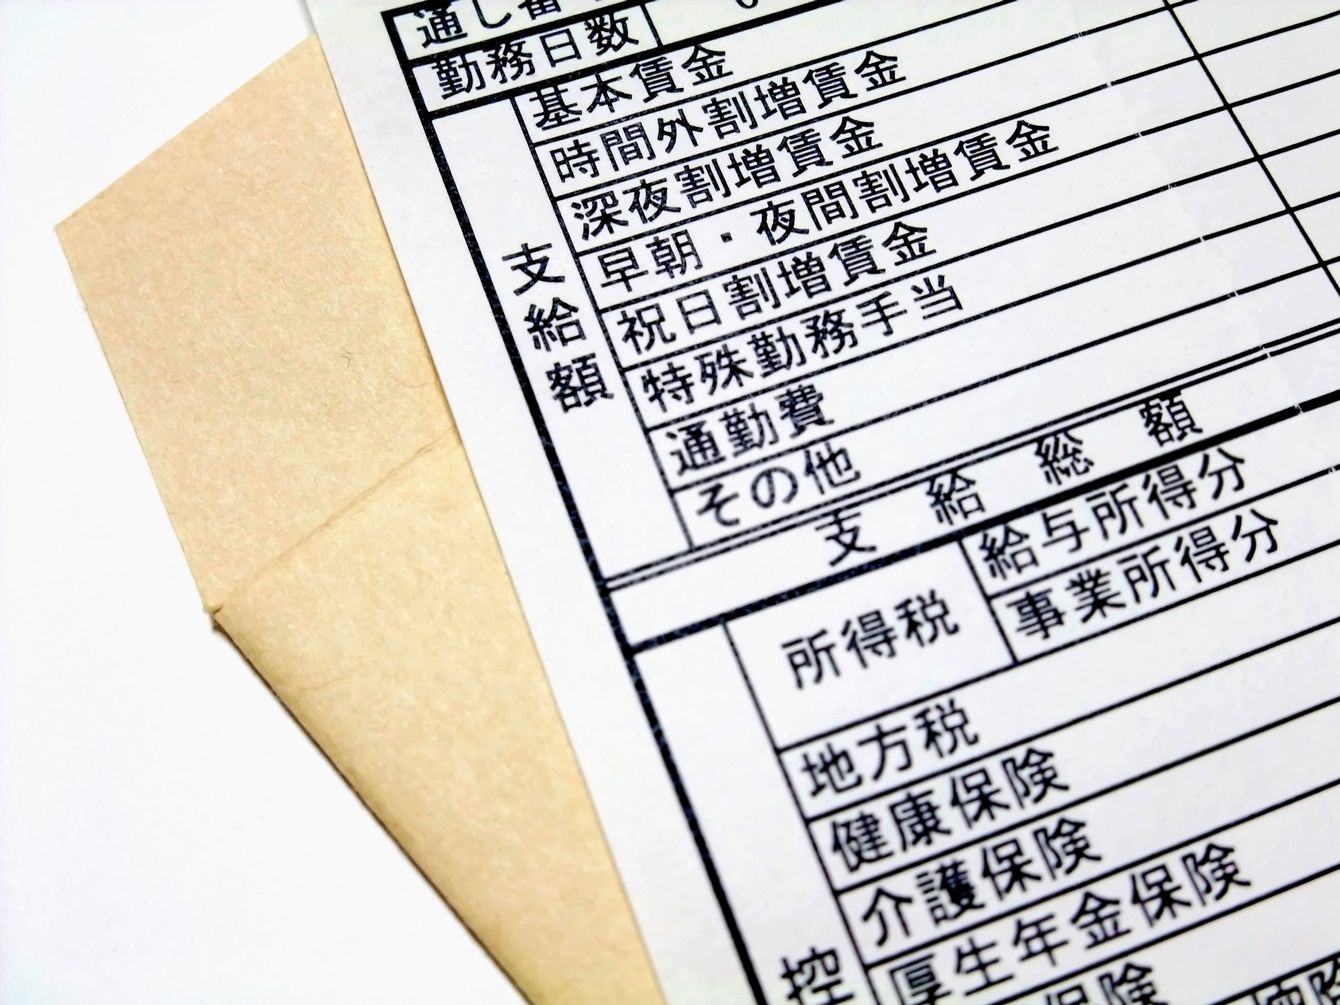 通し番
勤務日数
支給額
基本賃金
時間外割増賃金
深夜割増賃金
早朝・夜間割増賃金
祝日割増賃金
特殊勤務手当
通勤費
その他
支給総額
所得税
給与所得分
事業所得分
地方税
健康保険
介護保険
厚生年金保険
控
保険